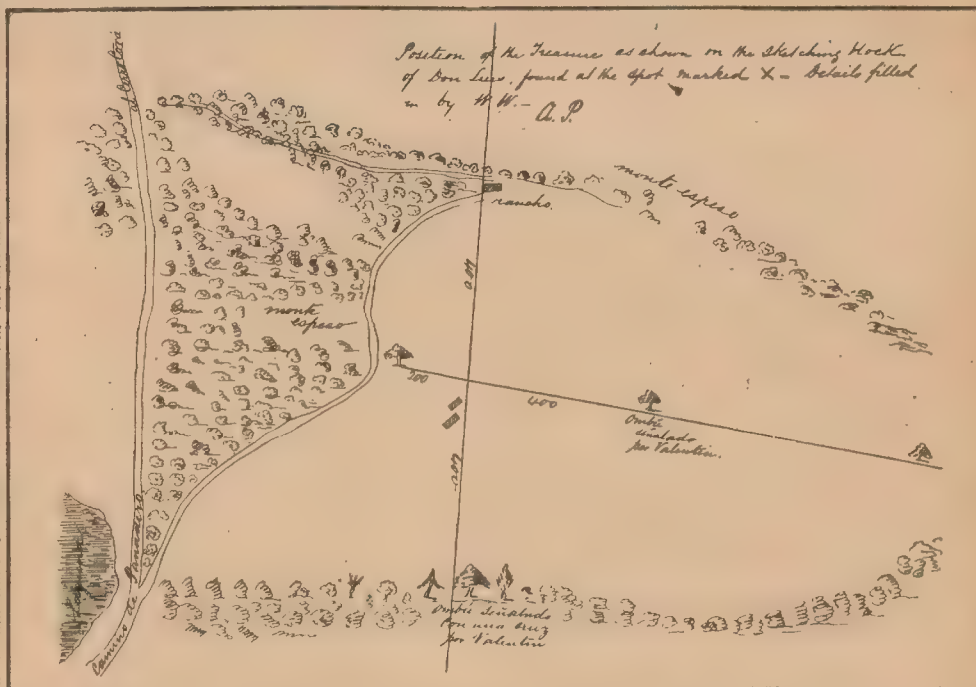 Position of the Treasure as shown on the sketching block
of Don Luis, found at the spot marked X – Details filled
in by H. W. –
A. P.
al
monte espeso
rancho.
monte
espeso
200
400
Ombú
señalado
por Valentin.
200
Camino de Panadero.
Ombú señalado
con una cruz
por Valentin